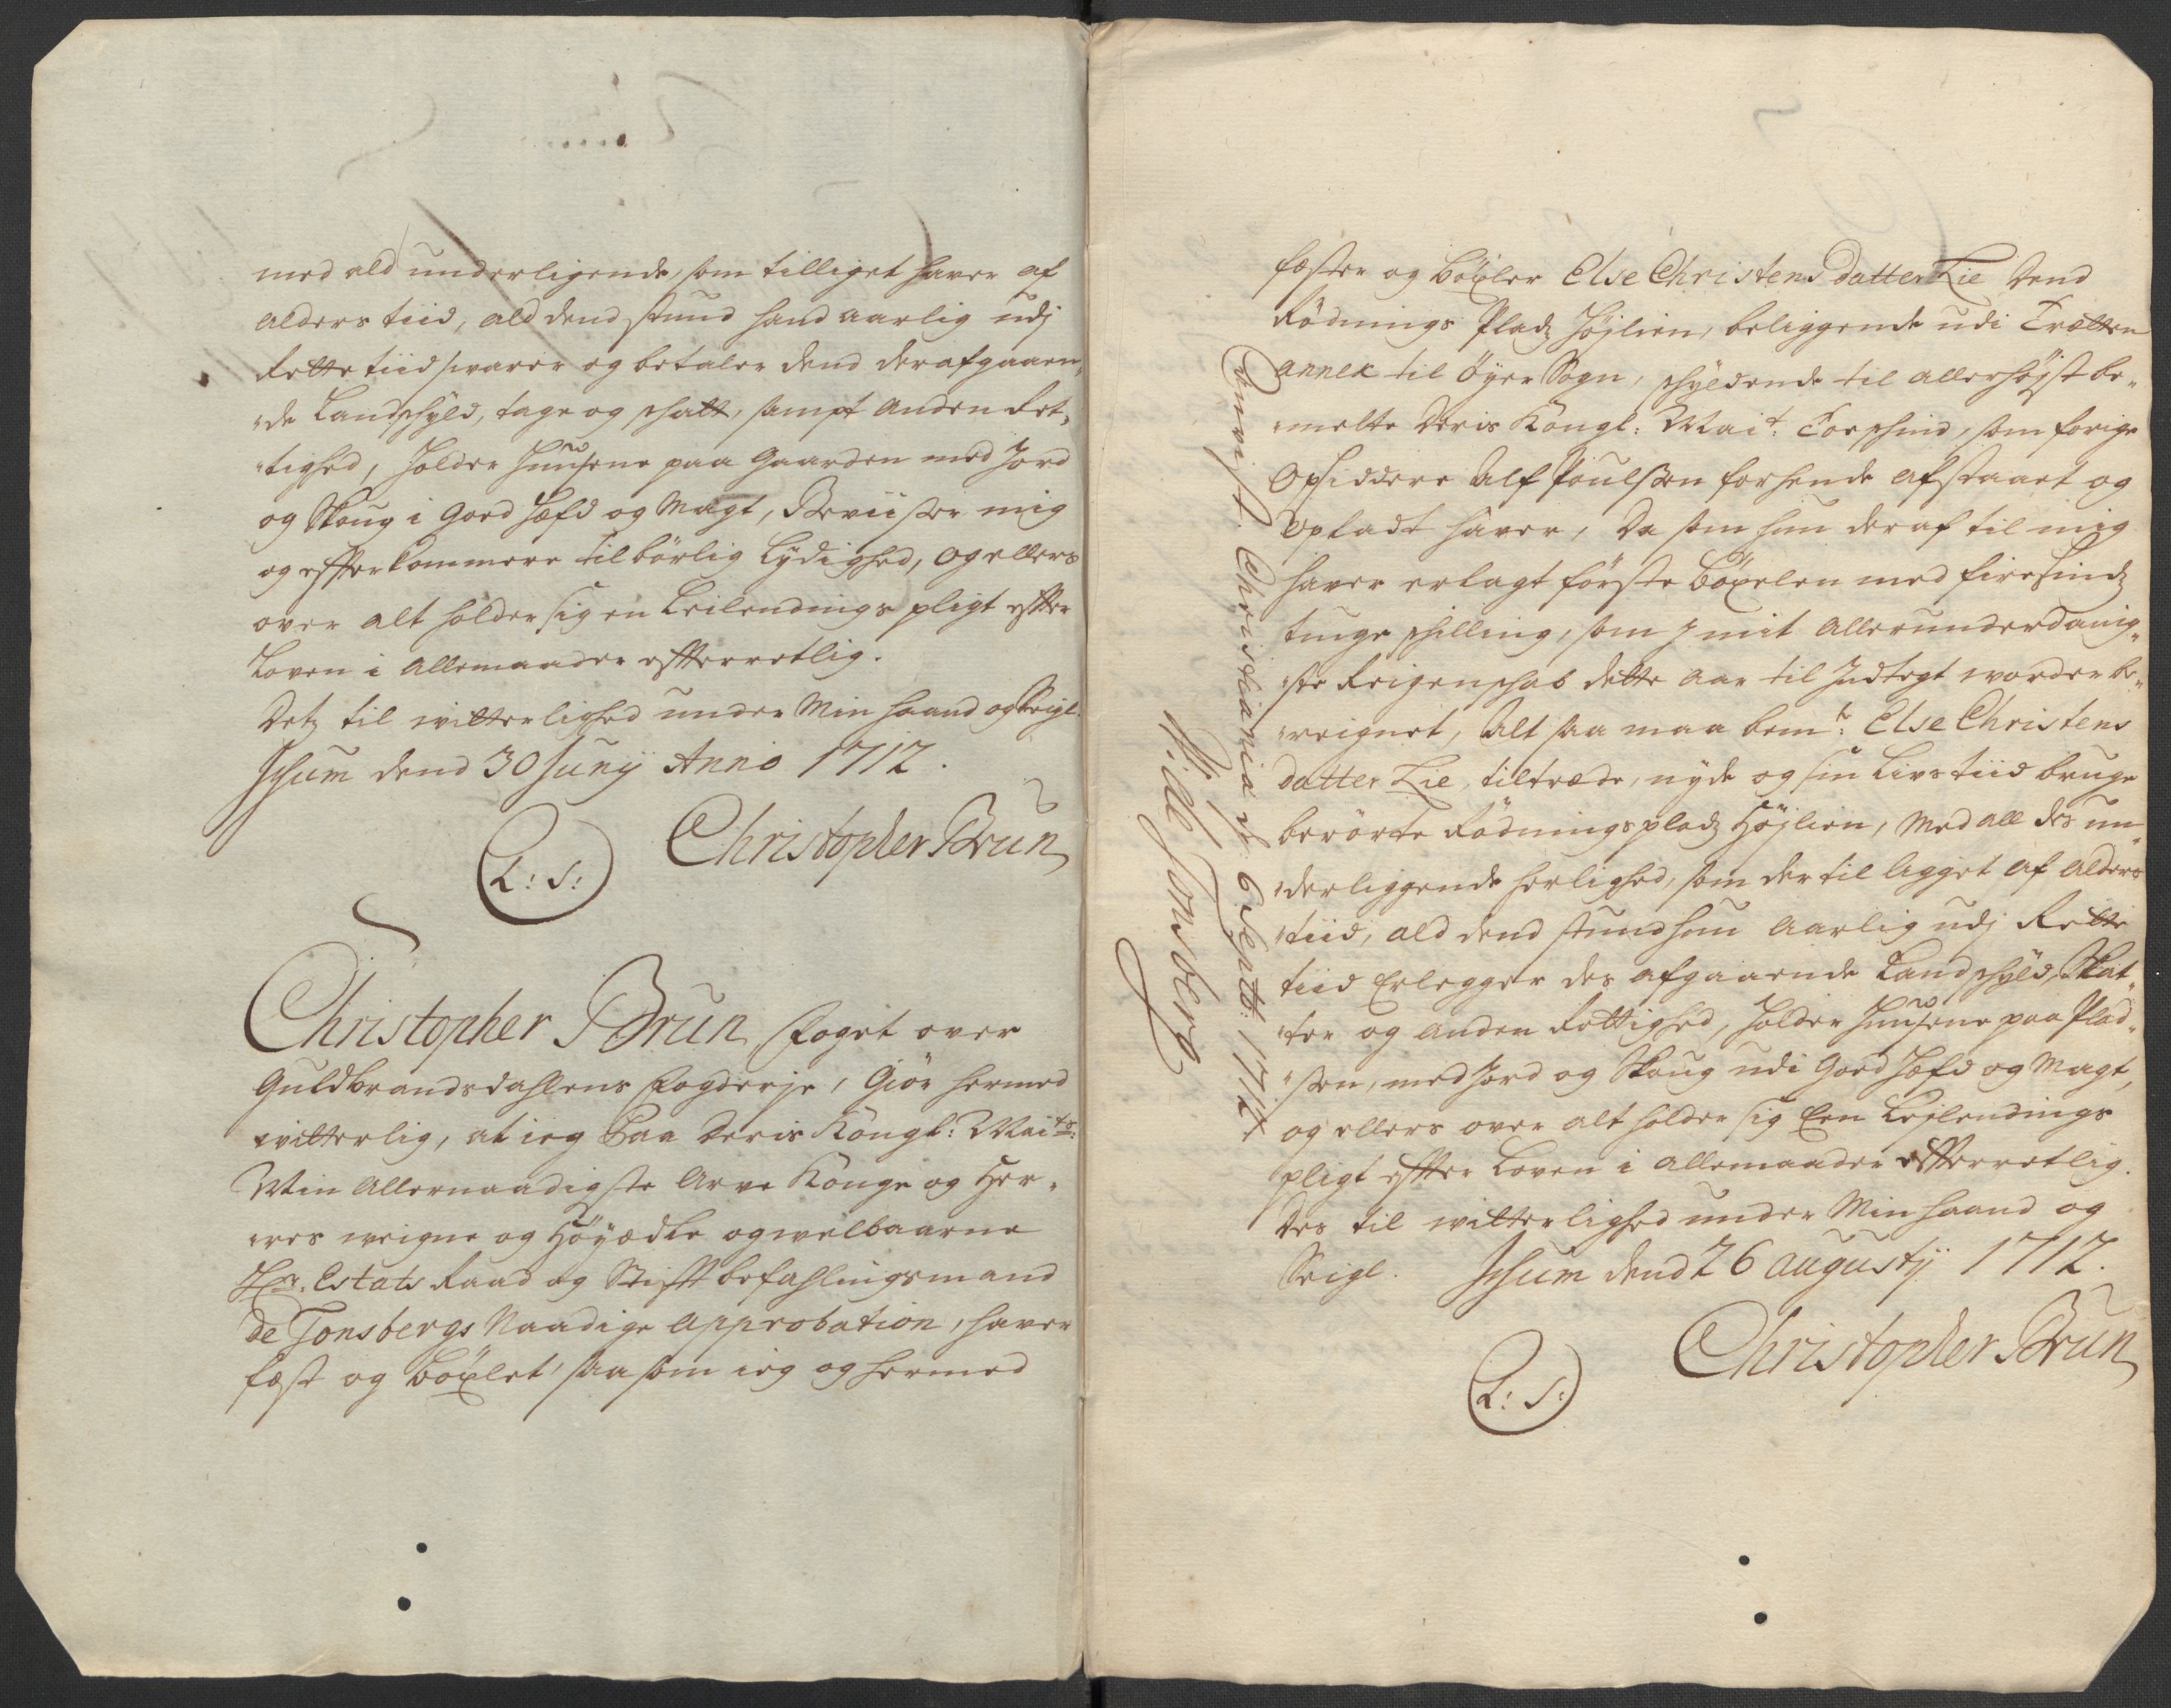 med ald underligende, som tilliget haver af
alders tiid, ald dend stund hand aarlig udj
Rette tiid svarer og betaler dend deraf gaaen„
„de Landschyld, tage og schatt, sampt anden Ret„
„tighed, holder Huusene paa Gaarden med Jord
og Skoug i Goed Hæfd og Magt, Beviiser mig
og effterkommere tilbörlig Lydighed, og ellers
over alt holder sig en Leilendings pligt effter
Loven i allemaader effterretlig.
Detz til witterlighed under Min haand og Seigl.
Jsum dend 30 Junÿ Anno 1712.
L: S: Christopher Brun
Christopher Brun, foget over
Guldbrandsdahlens fogderje, Giör hermed
witterlig, at ieg Paa Deris Kongl: Maits:
Min Allernaadigste Arve Konge og Her„
„res weigne og Höÿædle og welbaarne
Hr. Estats Raad og Stifft befahlingsmand
de Tonsbergs Naadige Approbation, haver
fæst og böxlet saa som ieg og hermed
fæster og böxler Else Christens datter Lie dend
Rödnings Pladz Höjlien, beliggende udi Tretten
annex til Öÿer Sogn, schyldende til allerhöjst be„
„melte Deris Kongl: Mait: Toe schind, som forige
Opsiddere Alf Poulssen for hende afstaaet og
opladt haver, Da som hun deraf til mig
haver erlagt förste böxelen med firesindz
tiuge schilling, som j mit allerunderdanig„
„ste Reigenschab dette aar til Indtegt worder be„
„reignet, Alt saa maa bemte: Else Christens
datter Lie, tiltræde, nÿde og sin Livs tiid bruge
berörte Rödnings pladz Höjlien, Med all des un„
„derliggende herlighed, som der til ligget af alders
„tiid, ald dend stund hun aarlig udj Rette
tiid Erlegger des afgaaende Landschyld, Skat„
„ter og anden Rettighed, holder Huusene paa Plad„
„sen, med Jord og Skoug udi Goed Hæfd og Magt,
og ellers over alt holder sig Een Lejlendings
pligt effter Loven i allemaader effterretlig.
Des til witterlighed under Min haand og
Seigl. Jsum dend 26 augustÿ 1712.
L: S: Christopher Brun
Christiania d: 6 Septb: 1712
Tonsberg